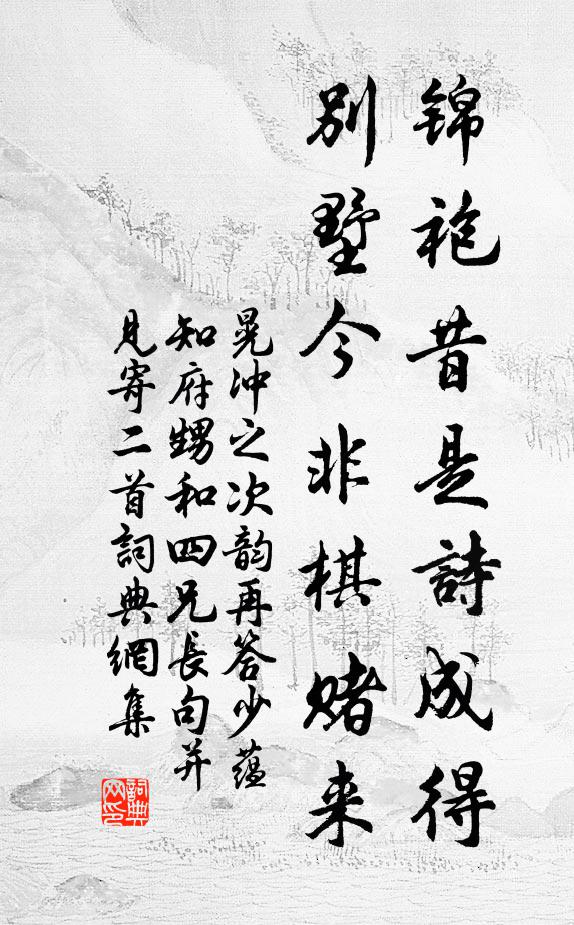 锦袍昔是詩成得
别墅今非棋赌来
晁冲之次韵再答少蕴
知府甥和四兄長句并
見寄二首詞典網集
詞典网印